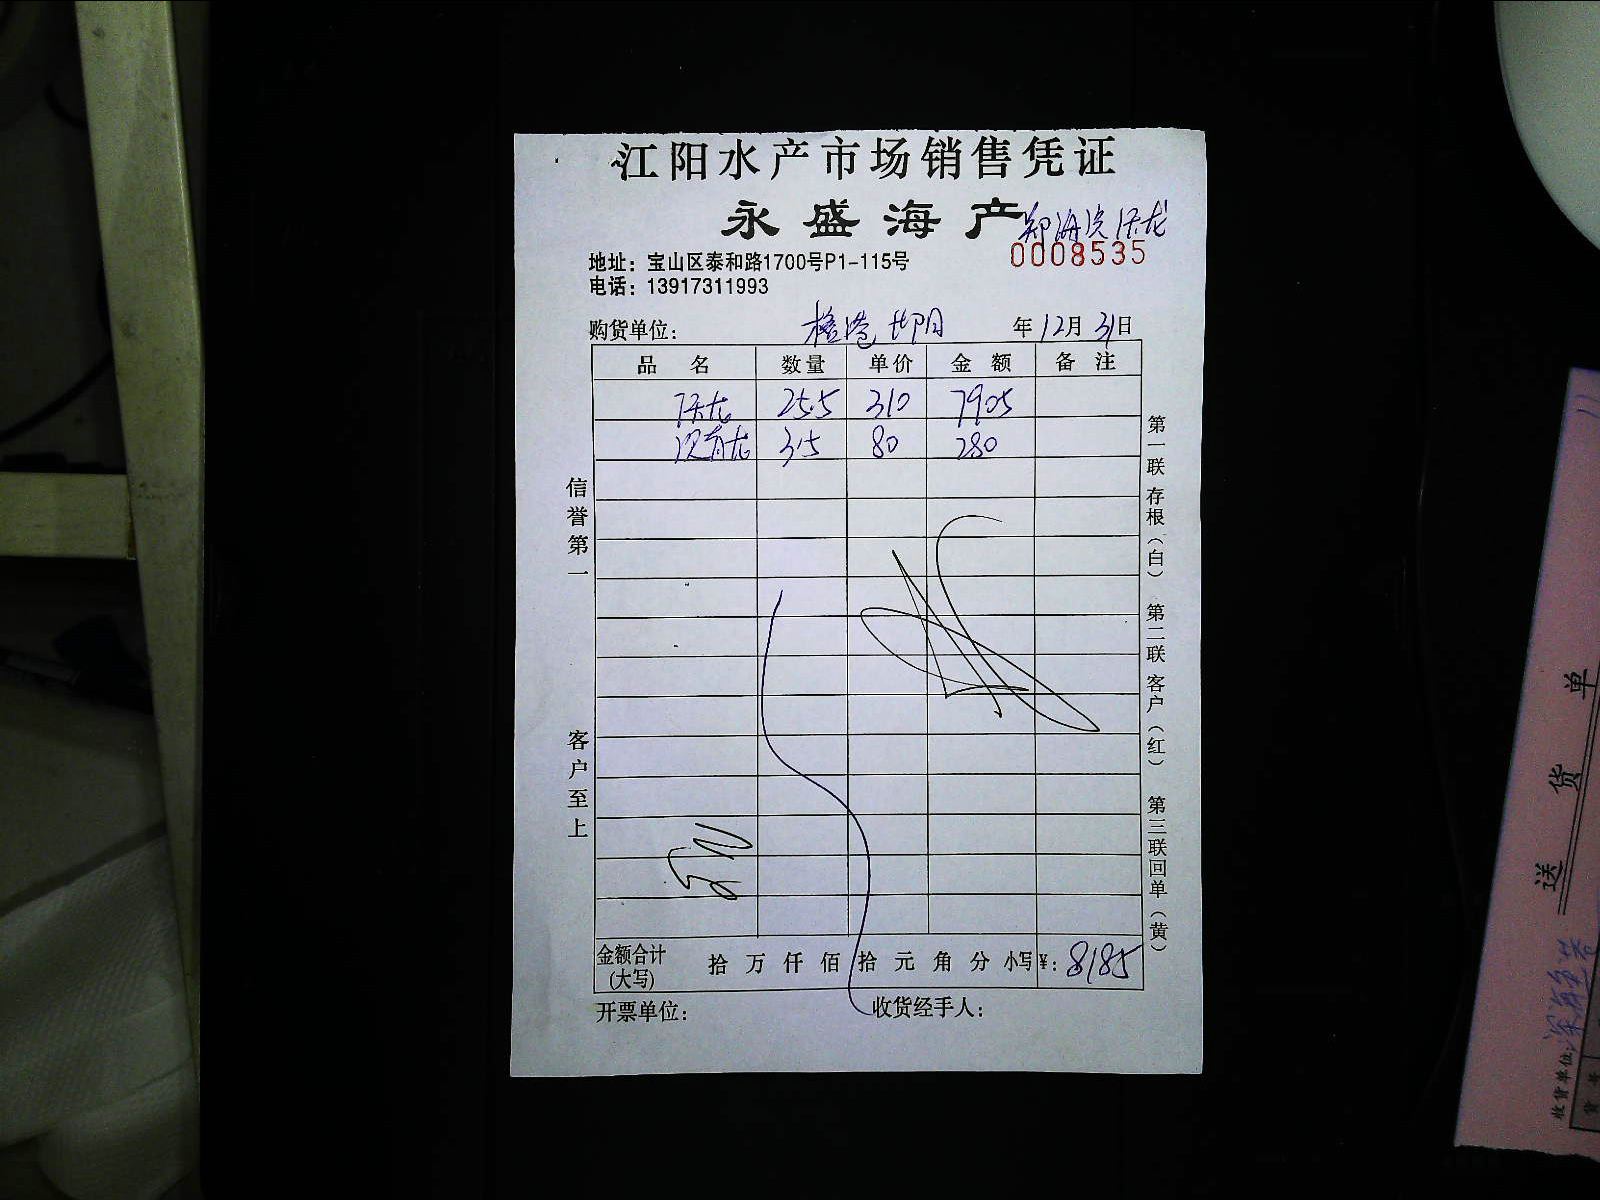 江阳水产市场销售凭证
永盛海产
0008535
地址：宝山区泰和路1700号P1-115号
电话：13917311993
购货单位： 年12月31日
品名 数量 单价 金额 备注
25.5 310 7905
3.5 80 280
信誉第一 客户至上
第一联存根（白） 第二联客户（红） 第三联回单（黄）
金额合计（大写） 拾 万 仟 佰 拾 元 角 分 小写¥：8185
开票单位： 收货经手人：
送货单
收货单位：